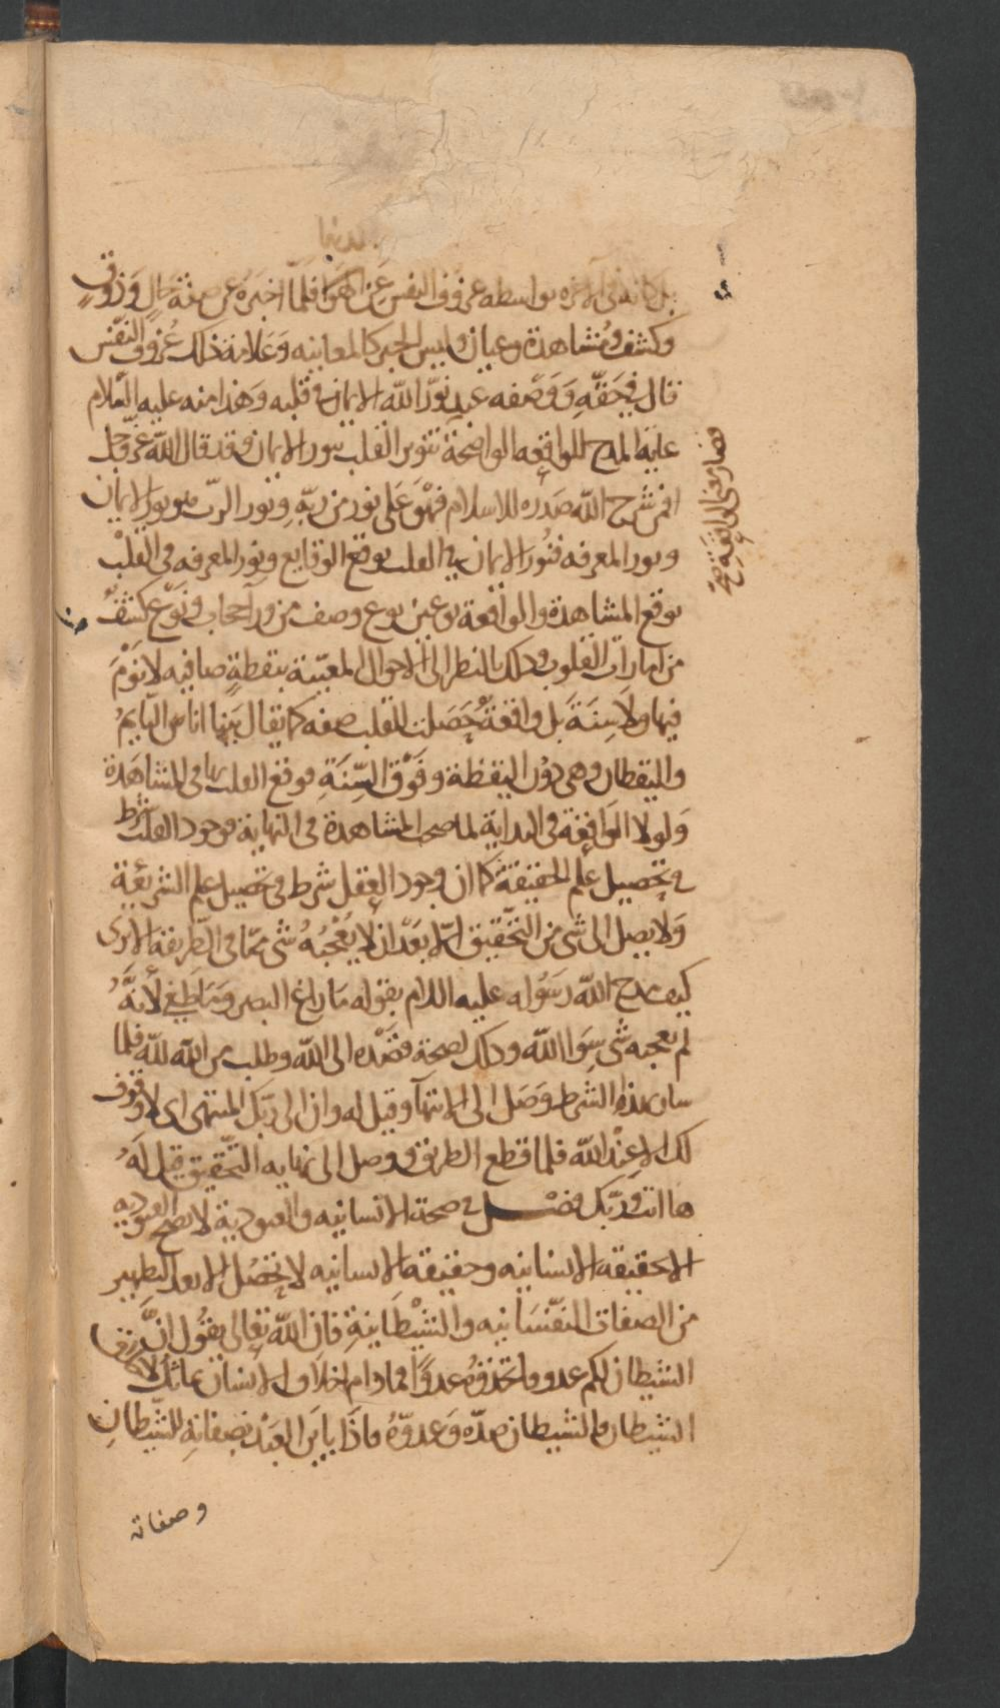 بل كانه في الآخره بواسطه عزوف النفس عن الهوا فلما اخبره عن صفة حال وذوق
وكشف ومشاهدة وعيان وليس الخبر كالمعاينه وعلامة ذلك عزوف النفس
قال في حقه ووصفه عبد نور الله الايمان في قلبه وهذا منه عليه السلام
غاية المدح للواقعه الواضحة تنوير القلب بنور الايمان وقد قال الله عز وجل
افمن شرح الله صدره للاسلام فهو على نور من ربه ونور الرب هو نور الايمان
ونور المعرفه فنور الايمان في القلب يوقع الوقايع ونور المعرفه في القلب
يوقع المشاهدة والواقعة نوعين نوع وصف من ورآ حجاب ونوع كشف
من امارات القلوب وذلك بالنظر الى الاحوال المغيبة بيقظة صافيه لا نوم
فيها ولا سنة بل واقعة حصلت للقلب صفه كما يقال بينا انا بين النايم
واليقظان وهي دون اليقظة وفوق السنة فوقع القلب في المشاهدة
ولولا الواقعة في البداية لما صحت المشاهدة في النهاية فوجود القلب شرط
في تحصيل علم الحقيقة كما ان وجود العقل شرط في تحصيل علم الشريعة
ولا يصل الى شي من التحقيق الا بعد ان لا يعجبه شي مما في الطريقة الا ترى
كيف مدح الله رسوله عليه السلام بقوله ما زاغ البصر وما طغى لأنه
لم يعجبه شي سوا الله وذلك لصحة قصده الى الله وطلب من الله لله فلما
سار بهذا الشرط وصل الى الانتهآ وقيل له وان الى ربك المنتهى اى لا وقوف
لك الا عند الله فلما قطع الطريق ووصل الى نهايه التحقيق قيل له
ها انت وربك فصل في صحة الانسانيه والعبودية لا تصح العبوديه
الا بحقيقه الانسانيه وحقيقه الانسانيه لا تحصل الا بعد التطهير
من الصفات النفسانيه والشيطانية فان الله تعالى يقول ان
الشيطان لكم عدو فاتخذوه عدوا فما دام اخلاق الانسان مماثلا لاخلاق
الشيطان فالشيطان ضده وعدوه فاذا باين العبد بصفاته للشيطان
وصفاته
فصار معنى الواقعة صح